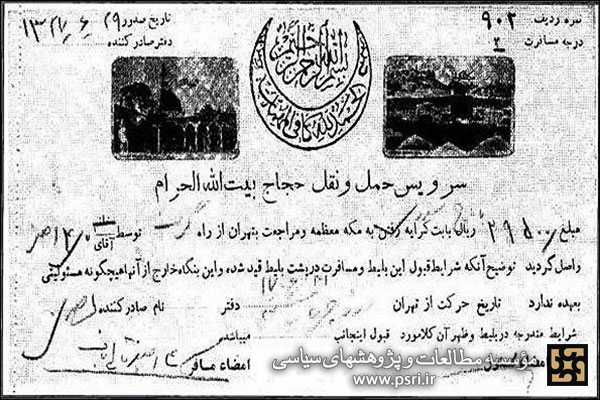 نمره ردیف ۹۰۲
تاریخ صدور ۲۹/۶/۱۳
درجه مسافرت ۲
دفتر صادر کننده
بسم الله الرحمن الرحیم
الحمدلله کافی المهمات
سرویس حمل و نقل حجاج بیت الله الحرام
مبلغ ۲۹۵۰۰ ریال بابت کرایه رفتن به مکه معظمه و مراجعت بتهران از راه توسط خانم آقای
واصل گردید توضیح آنکه شرایط قبول این بلیط و مسافرت در پشت بلیط قید شده و این بنگاه خارج از آنها هیچگونه مسئولیتی
بعهده ندارد تاریخ حرکت از تهران دفتر نام صادر کننده
شرایط مندرجه در بلیط و ظهر آن کلا مورد قبول اینجانب میباشد
امضاء مسئول امضاء مسافر
موسسه مطالعات و پژوهشهای سیاسی
www.psri.ir